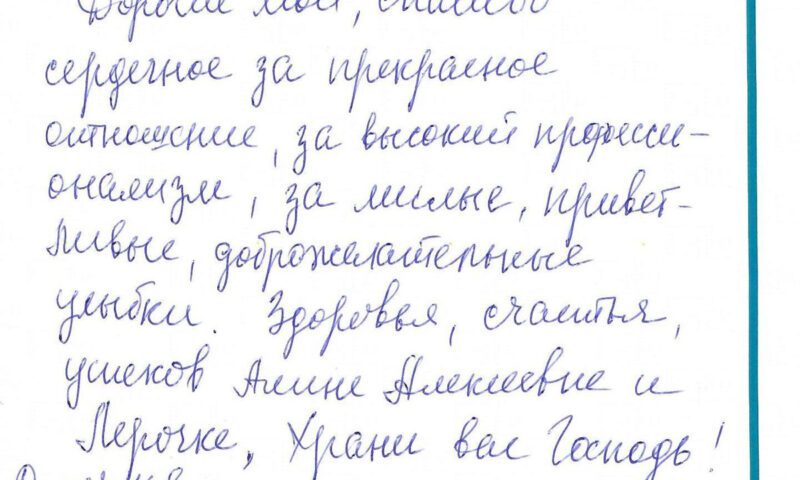 Дорогие мои, спасибо
сердечное за прекрасное
отношение, за высокий професси-
онализм, за милые, привет-
ливые, доброжелательные
улыбки. Здоровья, счастья,
успехов Алине Алексеевне и
Лерочке, Храни вас Господь!